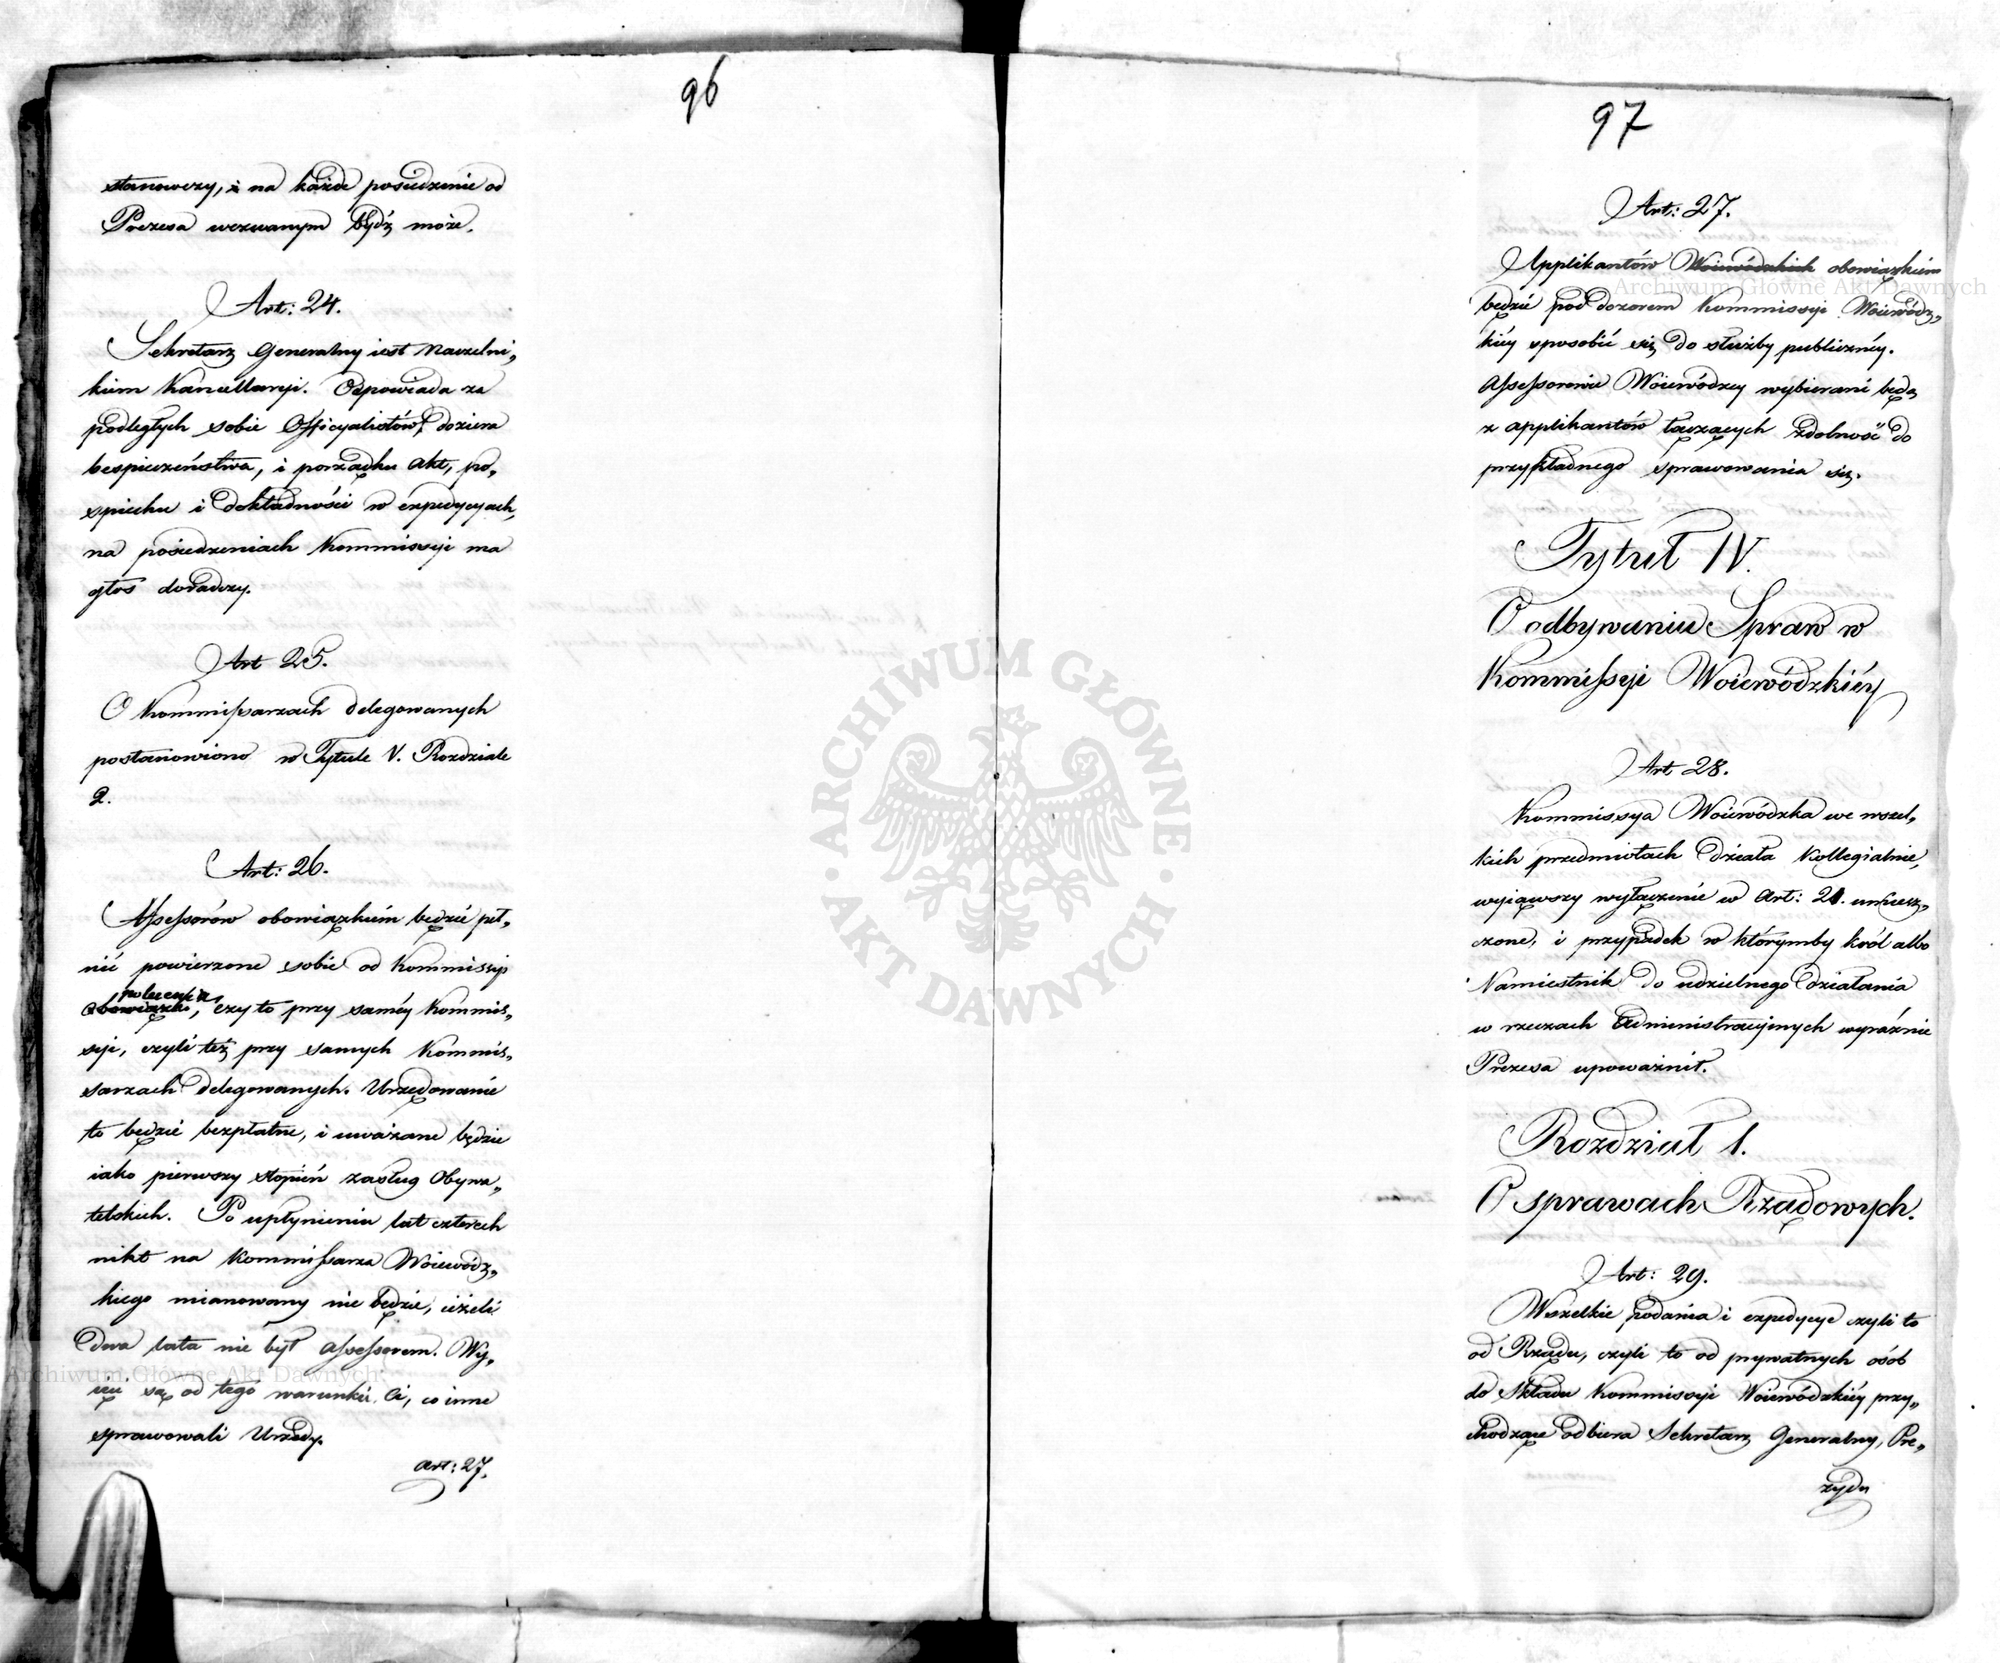 96
stanowczy, i na każde posiedzenie od
Prezesa wezwanym bydź może.
Art: 24.
Sekretarz Generalny iest Naczelni„
kiem Kancellaryi. Odpowiada za
podległych sobie Officyalistów, doziera
bespieczeństwa, i porządku Akt, po„
spiechu i dokładności w expedycyach,
na posiedzeniach Kommissyi ma
głos doradczy.
Art 25.
O Kommissarzach delegowanych
postanowiono w Tytule V. Rozdziale
2.
Art: 26.
Assessorów obowiązkiem będzie peł„
nić powierzone sobie od Kommissyi
polecenia
obowiązki, czy to przy saméy Kommis„
syi, czyli też przy samych Kommis„
sarzach delegowanych. Urzędowanie
to będzie bezpłatne, i uważane będzie
iako pierwszy stopień zasług Obywa„
telskich. Po upłynieniu lat czterech
nikt na Kommissarza Woiewódz„
kiego mianowany nie będzie, ieżeli
dwa lata nie był Assessorem. Wy„
ięci są od tego warunku Ci, co inne
sprawowali Urzędy.
Art: 27.
97
Art: 27.
Applikantów Woiewódzkich obowiązkiem
będzie pod dozorem Kommissyi Woiewódz„
kiéy sposobić się do służby publicznéy.
Assessorowie Woiewódzcy wybierani będą
z applikantów łączących zdolność do
przykładnego sprawowania się.
Tytuł IV.
O odbywaniu Spraw w
Kommissyi Woiewódzkiéy
Art 28.
Kommissya Woiewódzka we wszel„
kich przedmiotach działa Kollegialnie,
wyiąwszy wyłączenie w Art: 21. umiesz„
czone, i przypadek w którymby król albo
Namiestnik do udzielnego działania
w rzeczach Administracyjnych wyraźnie
Prezesa upoważnił.
Rozdział 1.
O sprawach Rządowych.
Art: 29.
Wszelkie podania i expedycye czyli to
od Rządu, czyli to od prywatnych osób
do Składu Kommissyi Woiewódzkiéy przy„
chodzące odbiera Sekretarz Generalny, Pre„
zydu
ARCHIWUM GŁÓWNE · AKT DAWNYCH ·
Archiwum Główne Akt Dawnych
Archiwum Główne Akt Dawnych